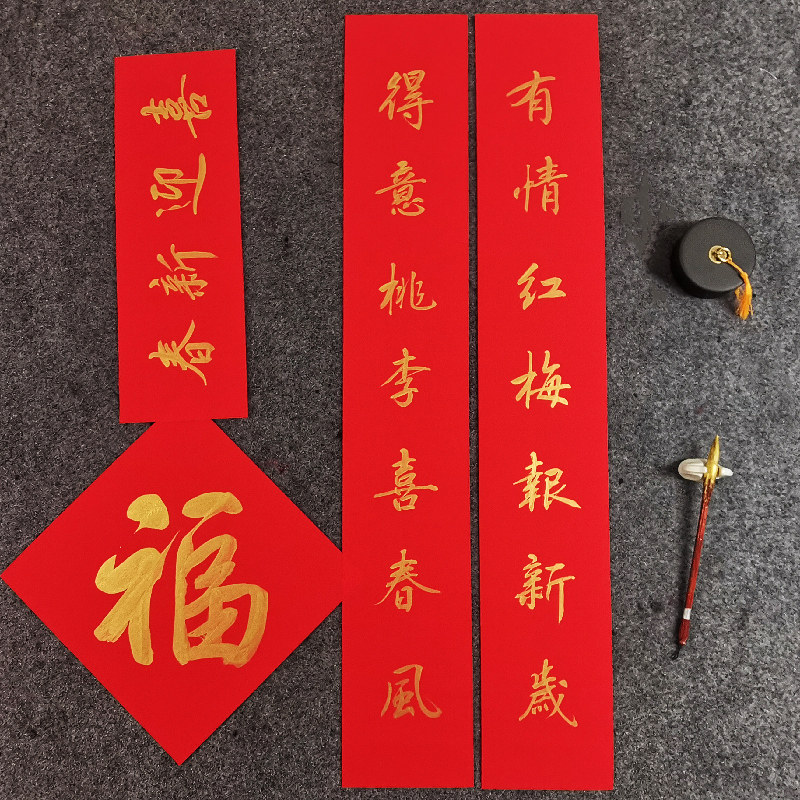 有情红梅報新歲
得意桃李喜春風
喜迎新春
福